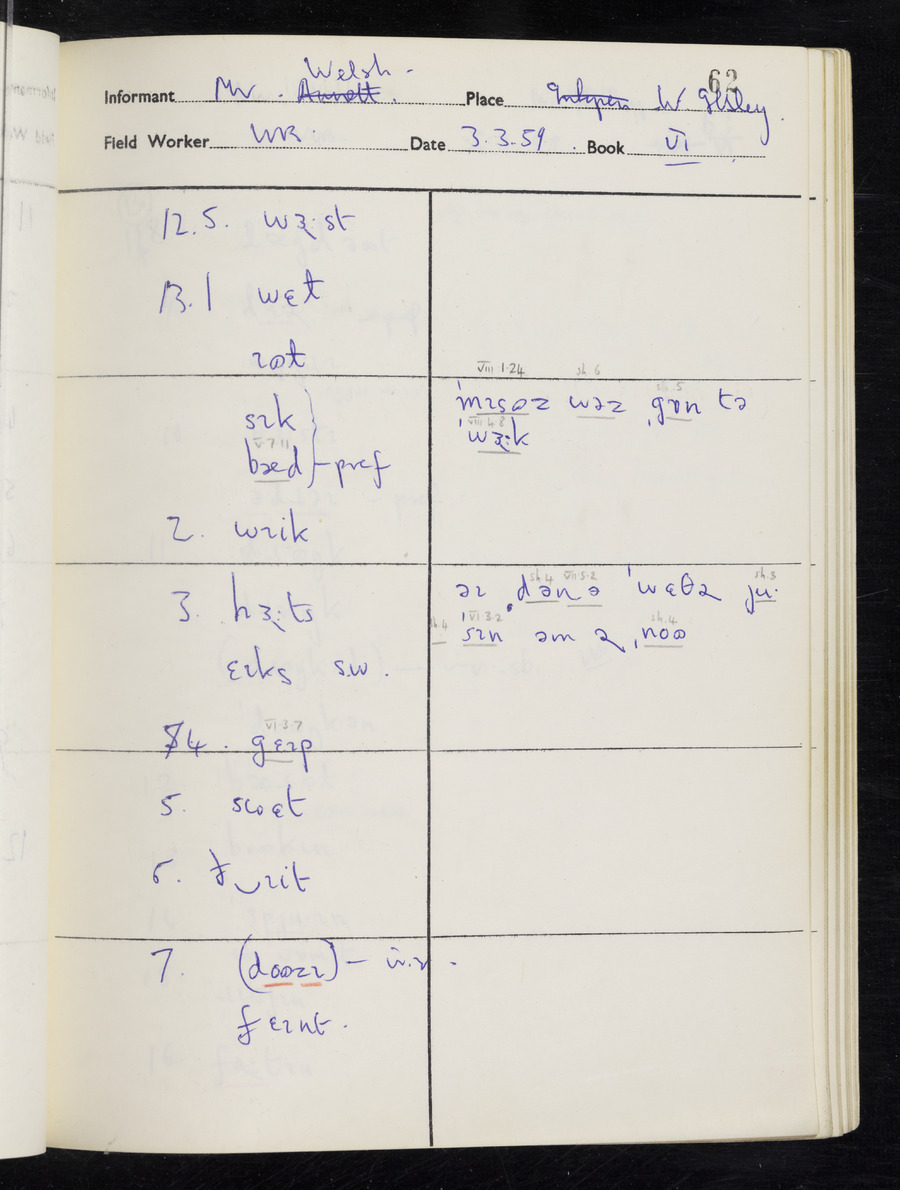 62
Welsh.
Informant Mr. Annett. Place Inkpen W Ilsley.
Field Worker WR. Date 3.3.59. Book VI
12.5. wɜ̨:st
13.1 wɛt
rɒt
sɪk
V·7·11
bæd } pref
2. wɪik
3. hɜ̨:ts
ɛɪks s.w.
4. gɛɪp
VI·3·7
5. swɛt
6.
7. (
fɛɪnt.
VIII 1·24 sh. 6 sh. 5
ˈmɪsəz wəz ˌgɒn tə
VIII 4·8
ˈwɜ̨:k
sh.4 VII·5·2 sh.3
əɪ ˌdənə ˈwɛðə ju·
sh.4 VI 3·2 sh.4
ˈsɪn əm ə ˌnoʊ